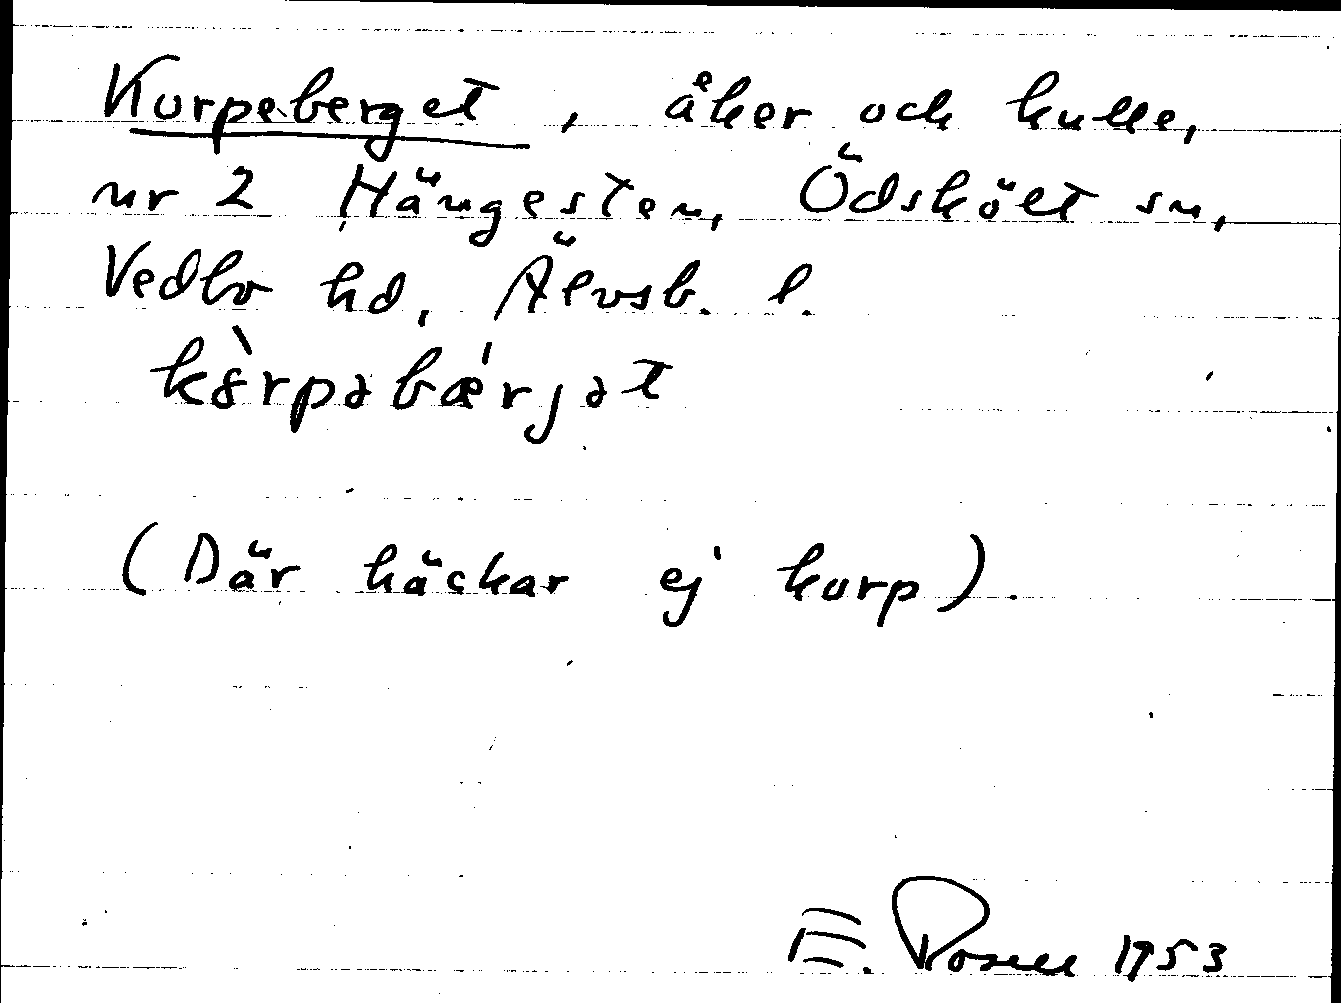 Korpeberget, åker och kulle,
nr 2 Hängesten, Ödskölt sn,
Vedbo hd, Älvsb. l.
kȯ̀rpəbǽrjət
(Där häckar ej korp).
E. Rosell 1953